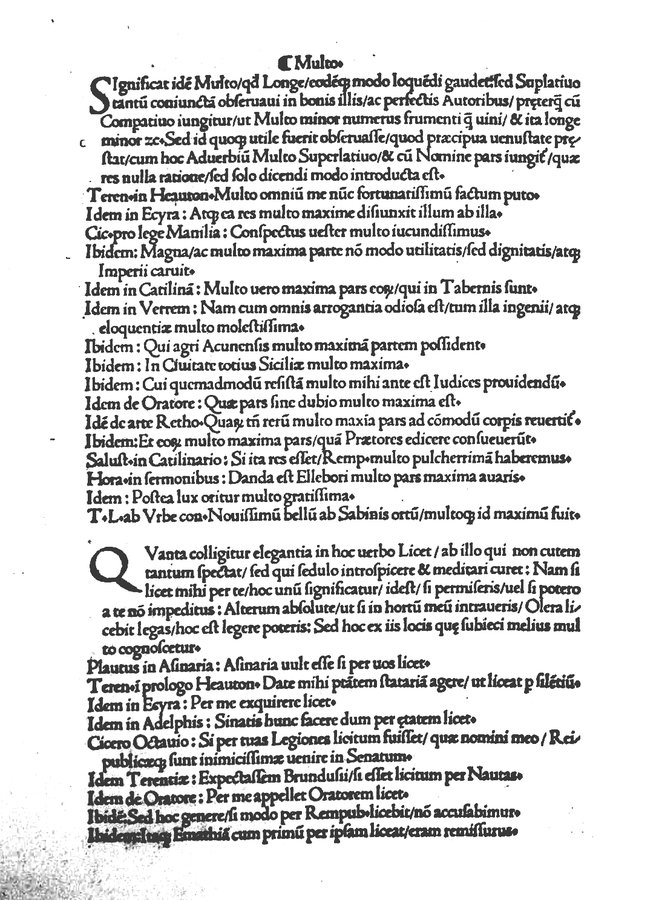 ¶ Multo.
SIgnificat idē Multo/qđ Longe/eodēqꝫ modo loquēdi gaudet:sed Suplatiuo
tantū coniunctā obseruaui in bonis illis/ac perfectis Autoribus/pręterq̄ cū
Compatiuo iungitur/ut Multo minor numerus frumenti q̄ uini/& ita longe
minor ⁊c. Sed id quoqꝫ utile fuerit obseruasse/quod præcipua uenustate prę/
stat/cum hoc Aduerbiū Multo Superlatiuo/& cū Nomine pars iungit᷑/quæ
res nulla ratione/sed solo dicendi modo introducta est.
Teren.in Heauton.Multo omniū me nūc fortunatissimū factum puto.
Idem in Ecyra : Atqꝫ ea res multo maxime disiunxit illum ab illa.
Cic.pro lege Manilia : Conspectus uester multo iucundissimus.
Ibidem: Magna/ac multo maxima parte nō modo utilitatis/sed dignitatis/atqꝫ
Imperii caruit.
Idem in Catilinā : Multo uero maxima pars eoꝝ/qui in Tabernis sunt.
Idem in Verrem : Nam cum omnis arrogantia odiosa est/tum illa ingenii/ atqꝫ
eloquentiæ multo molestissima.
Ibidem : Qui agri Acunensis multo maximā partem possident.
Ibidem : In Ciuitate totius Siciliæ multo maxima.
Ibidem : Cui quemadmodū resistā multo mihi ante est Iudices prouidendū.
Idem de Oratore : Quæ pars sine dubio multo maxima est.
Idē de arte Retho.Quaꝝ tn̄ rerū multo maxīa pars ad cōmodū corpis reuertit᷑.
Ibidem:Et eoꝝ multo maxima pars/quā Prætores edicere consueuerūt.
Salust.in Catilinario : Si ita res esset/Remp.multo pulcherrimā haberemus.
Hora.in sermonibus : Danda est Ellebori multo pars maxima auaris.
Idem : Postea lux oritur multo gratissima.
T.L.ab Vrbe con.Nouissimū bellū ab Sabinis ortū/multoqꝫ id maximū fuit.
QVanta colligitur elegantia in hoc uerbo Licet / ab illo qui non cutem
tantum spectat/ sed qui sedulo introspicere & meditari curet : Nam si
licet mihi per te/hoc unū significatur/ idest/ si permiseris/uel si potero
a te nō impeditus : Alterum absolute/ut si in hortū meū intraueris/ Olera li/
cebit legas/hoc est legere poteris: Sed hoc ex iis locis quę subieci melius mul
to cognoscetur.
Plautus in Asinaria : Asinaria uult esse si per uos licet.
Teren.ī prologo Heauton. Date mihi ptātem statariā agere/ ut liceat ꝑ silētiū.
Idem in Ecyra : Per me exquirere licet.
Idem in Adelphis : Sinatis hunc facere dum per ętatem licet.
Cicero Octauio : Si per tuas Legiones licitum fuisset/ quæ nomini meo / Rei/
publicæqꝫ sunt inimicissimæ uenire in Senatum.
Idem Terentiæ : Expectassem Brundusii/si esset licitum per Nautas.
Idem de Oratore : Per me appellet Oratorem licet.
Ibidē:Sed hoc genere/si modo per Rempub.licebit/nō accusabimur.
Ibidem:Itaqꝫ Emathiā cum primū per ipsam liceat/eram remissurus.